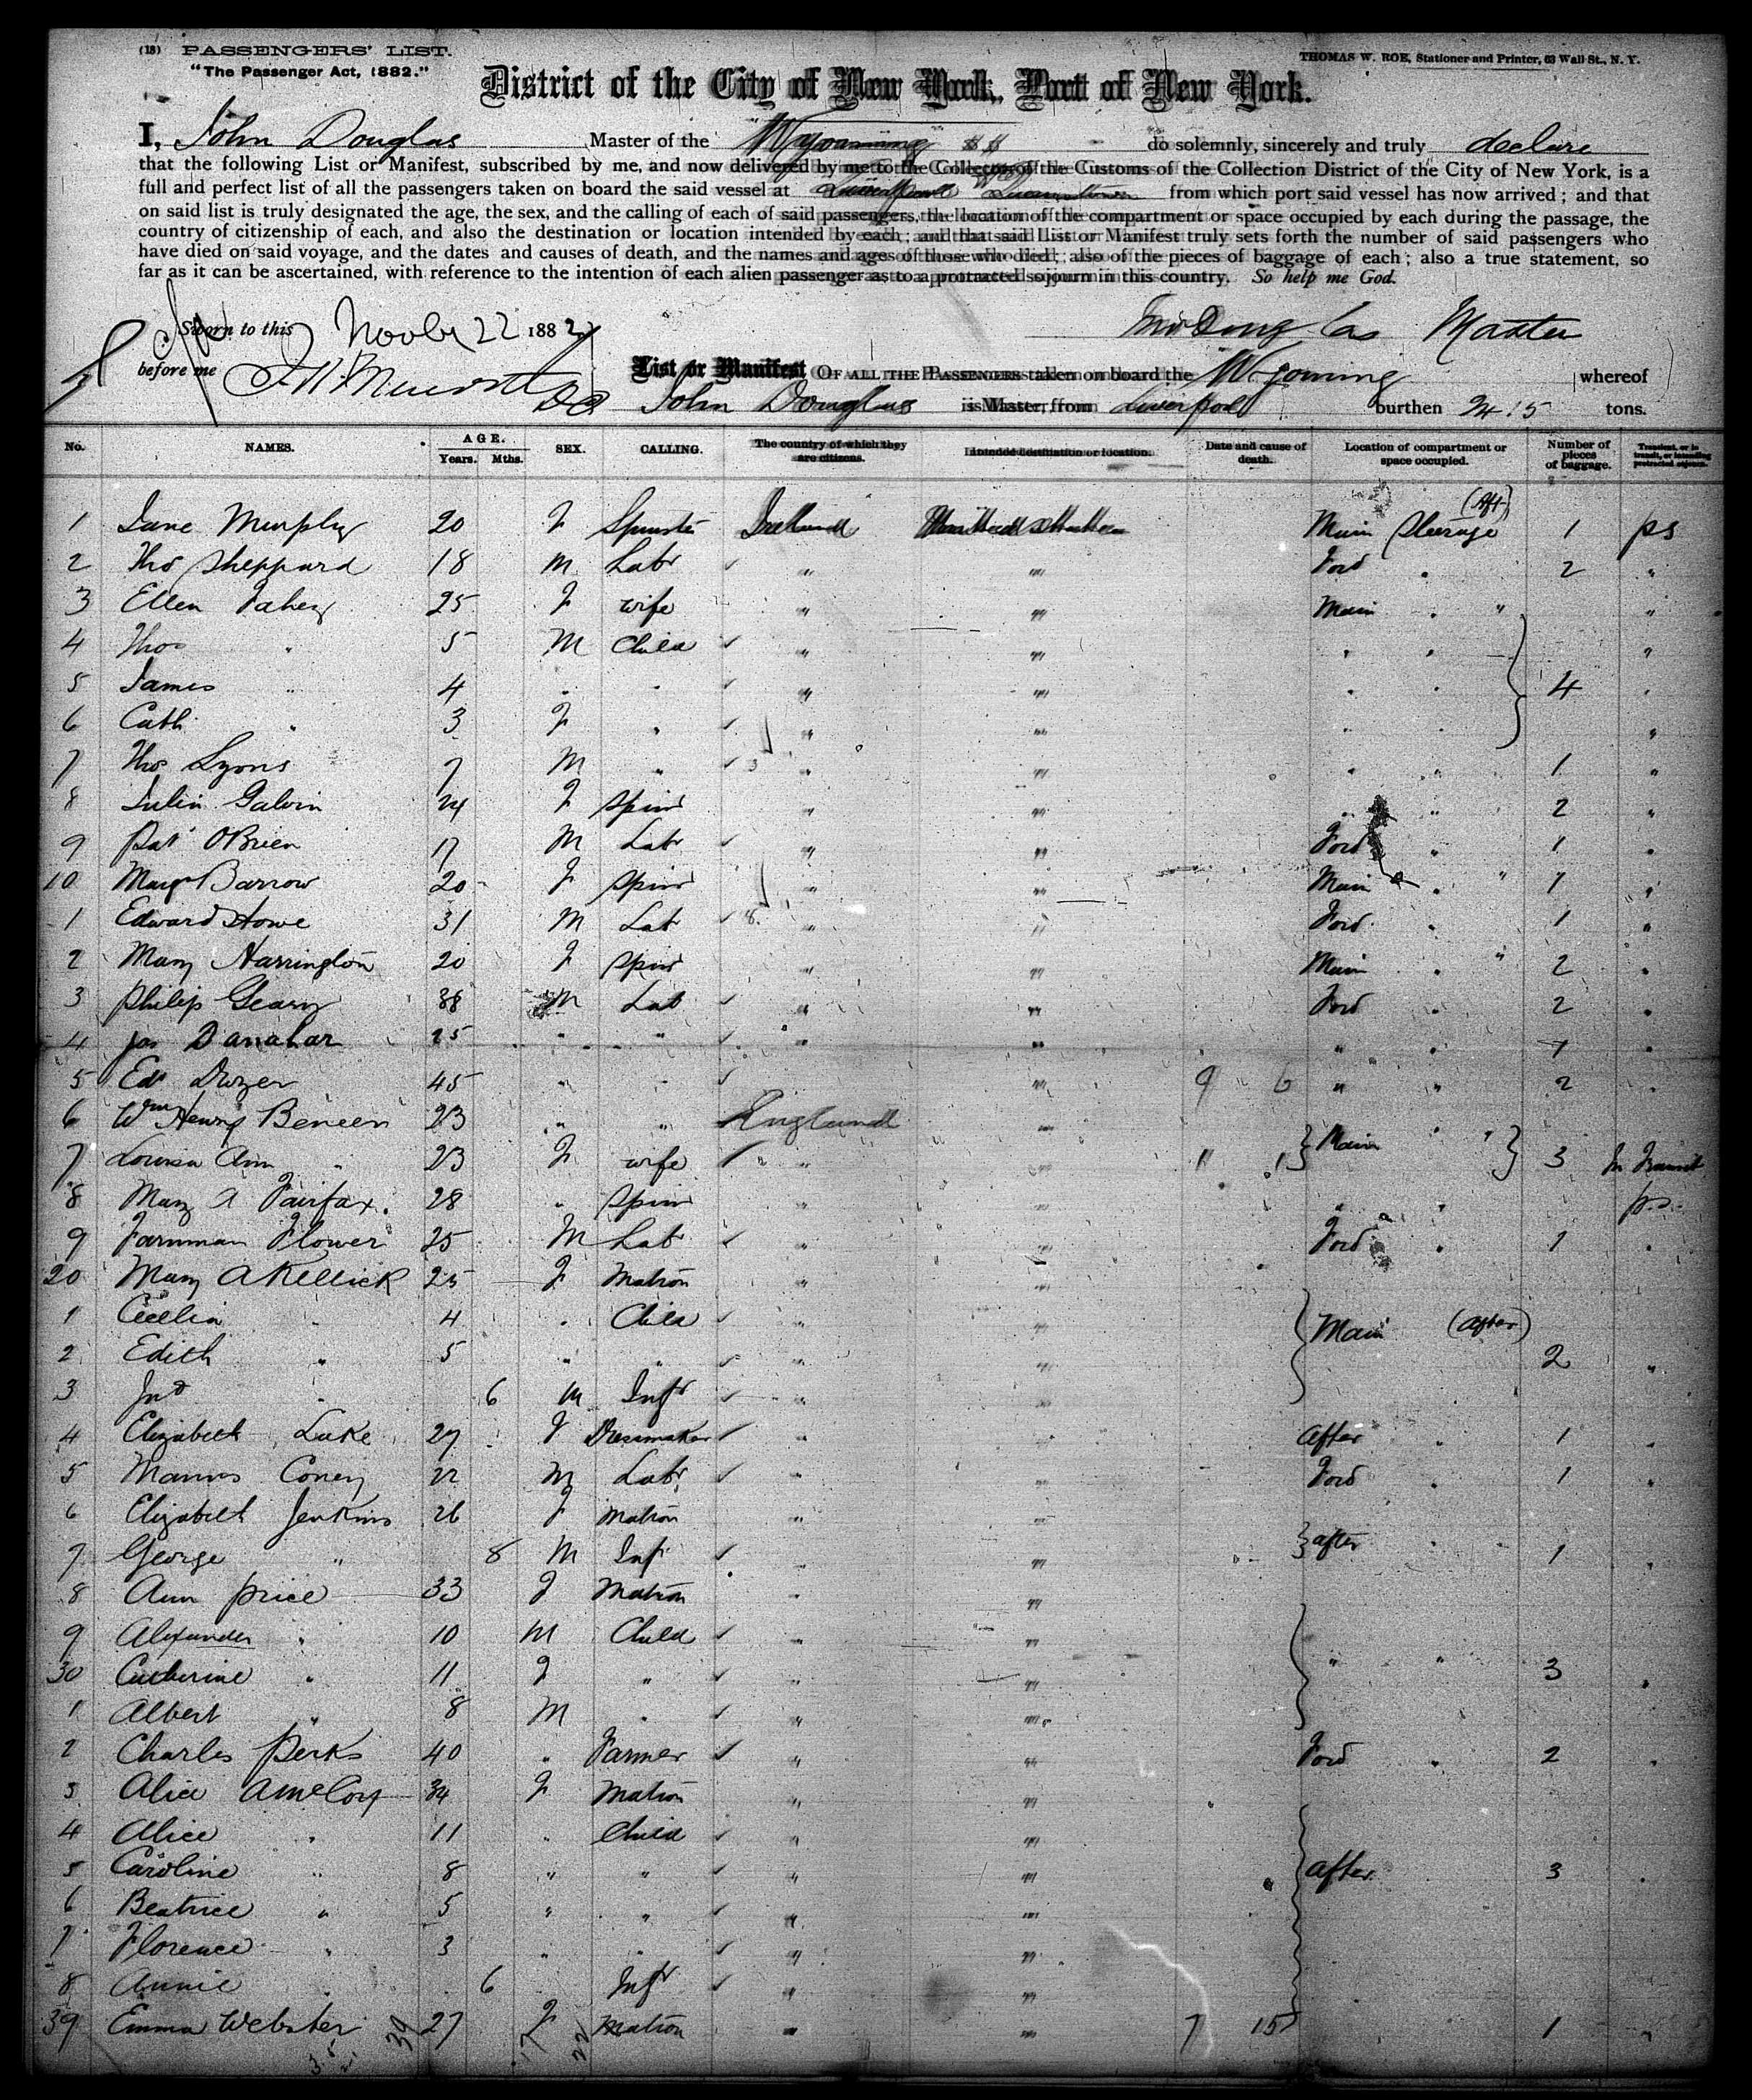 (18) PASSENGERS' LIST.
"The Passenger Act, 1882."
THOMAS W. ROE, Stationer and Printer, 63 Wall St., N. Y.
District of the City of New York, Port of New York.
I, John Douglas Master of the Wyoming SS do solemnly, sincerely and truly declare
that the following List or Manifest, subscribed by me, and now delivered by me to the Collector of the Customs of the Collection District of the City of New York, is a
full and perfect list of all the passengers taken on board the said vessel at Liverpool & Queenstown from which port said vessel has now arrived; and that
on said list is truly designated the age, the sex, and the calling of each of said passengers, the location of the compartment or space occupied by each during the passage, the
country of citizenship of each, and also the destination or location intended by each; and that said List or Manifest truly sets forth the number of said passengers who
have died on said voyage, and the dates and causes of death, and the names and ages of those who died; also of the pieces of baggage of each; also a true statement, so
far as it can be ascertained, with reference to the intention of each alien passenger as to a protracted sojourn in this country. So help me God.
Sworn to this Novbr 22 1882
Jno Douglas Master
before me
List or Manifest OF ALL THE PASSENGERS taken on board the Wyoming whereof
John Douglas is Master, from Liverpool burthen 2415 tons.
No. NAMES. AGE. Years. Mths. SEX. CALLING. The country of which they are citizens. Intended destination or location. Date and cause of death. Location of compartment or space occupied. Number of pieces of baggage. Transient, or in transit, or intending protracted sojourn.
1 Jane Murphy 20 F Spinstr Ireland United States Main Steerage (Aft) 1 ps
2 Thos Sheppard 18 M Labr " " Ford " 2 "
3 Ellen Fahey 25 F wife " " Main " " "
4 Thos " 5 M Child " " " " "
5 James " 4 " " " " " " 4 "
6 Cath " 3 F " " " " " "
7 Thos Lyons 7 M " 3 " " " " " 1 "
8 Julia Galvin 24 F Spinr " " " " 2 "
9 Pat OBrien 17 M Labr " " Ford " 1 "
10 Margt Barrow 20 F Spinr " " Main " " 1 "
1 Edward Howe 31 M Lab 8 " " Ford " 1 "
2 Mary Harrington 20 F Spinr " " Main " " 2 "
3 Philip Geary 38 M Lab " " Ford " 2 "
4 Jas Danahar 25 " " " " " " 1 "
5 Ed Dwyer 45 " " " 9 6 " " 2 "
6 Wm Henry Beneen 23 " " England " Main " "
7 Louisa Ann " 23 F wife " " 11 1 3 In Transit
8 Mary A Fairfax. 28 " Spinr " " " " ps
9 Farnman Flower 25 M Labr " " Ford " 1 "
20 Mary A Kellick 25 F Matron " "
1 Cecelia " 4 " Child " " Main (After)
2 Edith " 5 " " " " 2 "
3 Jno " 6 M Inft " "
4 Elizabeth Luke 27 F Dressmaker " " After " 1 "
5 Coney 22 M Labr " " Ford " 1 "
6 Elizabeth Jenkins 26 F Matron " "
7 George " 8 M Inf " " after " 1 "
8 Ann Price 33 F Matron " "
9 Alexander " 10 M Child " "
30 Catherine " 11 F " " " " " 3 "
1 Albert " 8 M " " "
2 Charles Perks 40 " Farmer " " Ford " 2 "
3 Alice 34 F Matron " "
4 Alice " 11 " Child " "
5 Caroline " 8 " " " " after 3 "
6 Beatrice " 5 " " " "
7 Florence " 3 " " " "
8 Annie " 6 Inft " "
39 Emma Webster 27 F Matron " " 7 15 1 "
39 17 22